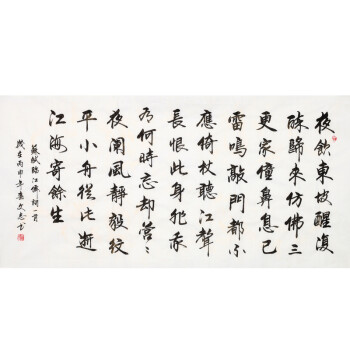 夜飲東坡醒復
醉歸來仿佛三
更家僮鼻息已
雷鳴敲門都不
應倚杖聽江聲
長恨此身非我
有何時忘却營〻
夜闌風靜縠紋
平小舟從此逝
江海寄餘生
蘇軾臨江僊詞一首
歲在丙申年文志書